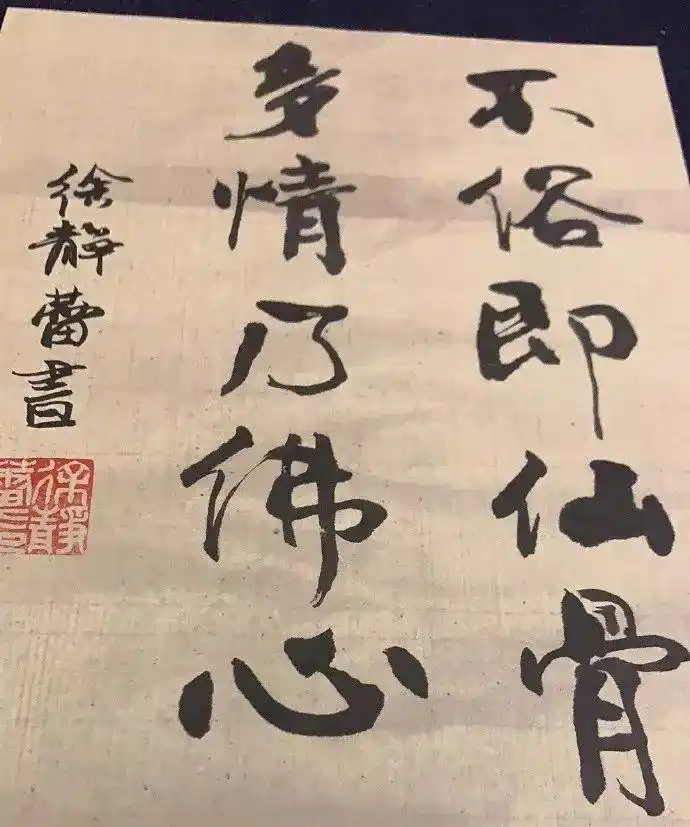 不俗即仙骨
多情乃佛心
徐静蕾書